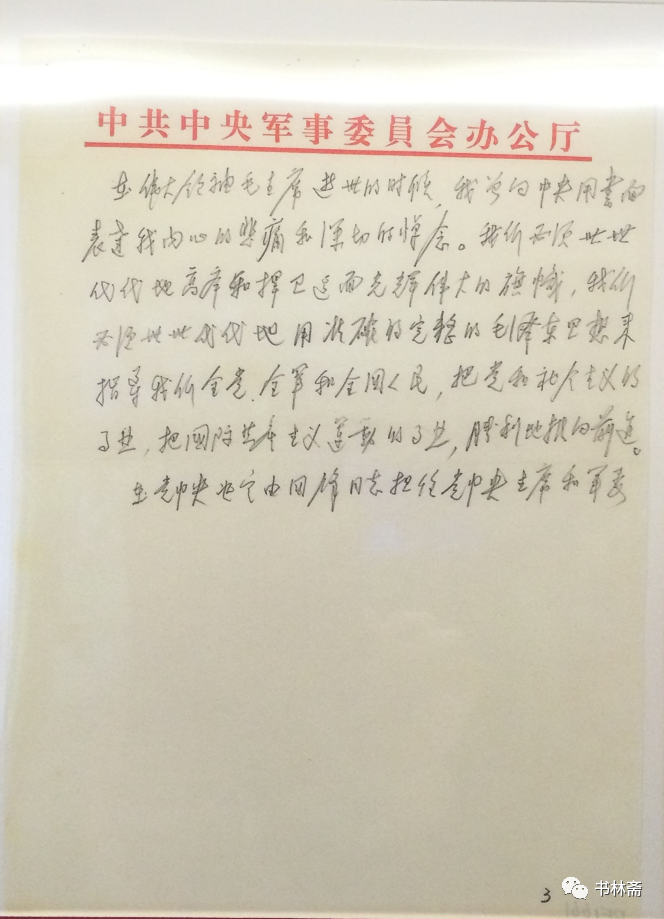 中共中央军事委員会办公厅
在伟大领袖毛主席逝世的时候，我曾向中央用書面
表達我内心的悲痛和深切的悼念。我们必须世世
代代地高举和捍卫这面光辉伟大的旗帜，我们
必须世世代代地用准确的完整的毛泽东思想来
指导我们全党、全军和全国人民，把党和社会主义的
事业，把国际共产主义運動的事业，勝利地推向前進。
在党中央决定由国锋同志担任党中央主席和军委
3
书林斋